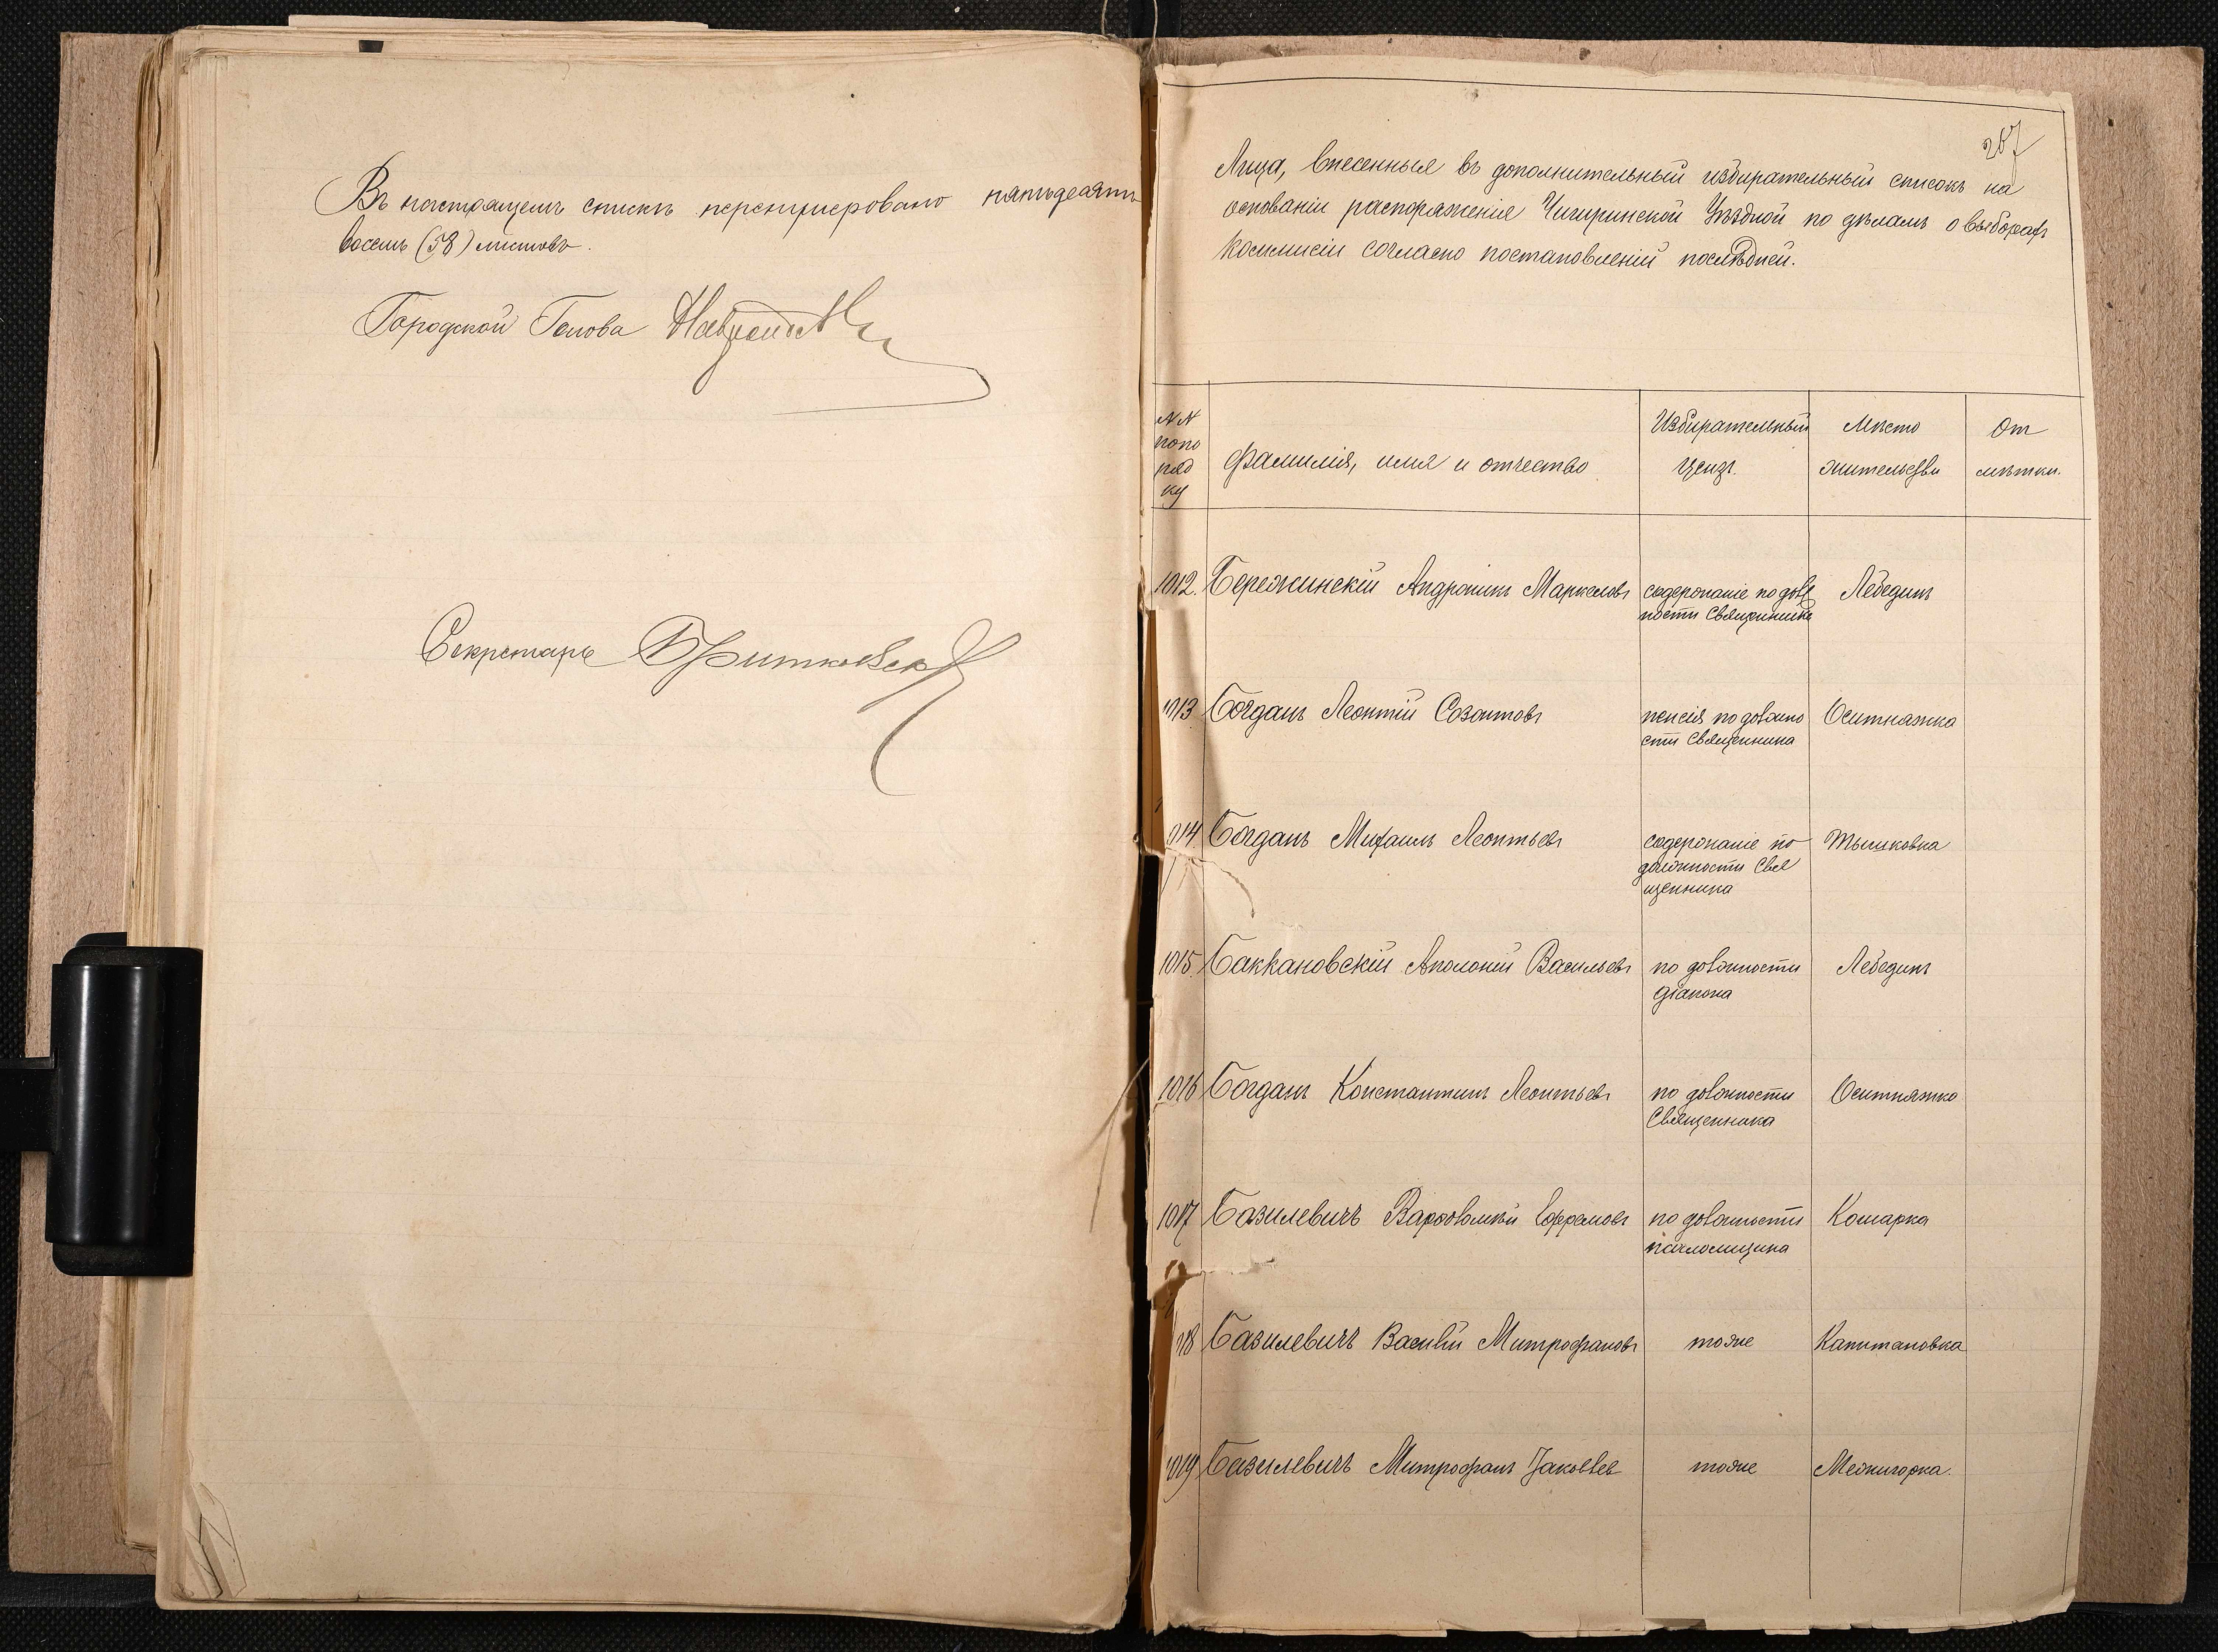 Въ настоящемъ спискѣ перенумеровано пятьдесятъ
восемь (58) листовъ.
Городской Голова
Секретарь
267
Лица, внесенныя въ дополнительный избирательный списокъ на
основаніи распоряженія Чигиринской Уѣздной по дѣламъ о выборахъ
Коммисіи согласно постановленій послѣдней.
№№ попо ряд ку
Фамилія, имя и отчество
Избирательный цензъ.
Мѣсто жительства
От мѣтки.
1012. Бережинскій Андроникъ Маркеловъ содержаніе по долж ности Священника Лебединъ
1013 Богданъ Леонтій Созонтовъ пенсія по должно сти Священника Оситняжка
1014. Богданъ Михаилъ Леонтьевъ содержаніе по должности Свя щенника Тышковка
1015. Баккановскій Аполоній Васильевъ по должности діакона Лебединъ
1016 Богданъ Константинъ Леонтьевъ по должности Священника Оситняжка
1017 Базилевичъ Варфоломій Ефремовъ по должности псаломщика Комарка
1018 Базилевичъ Василій Митрофановъ тоже Капитановка
1019 Базилевичъ Митрофанъ Яковлев тоже Межигорка.